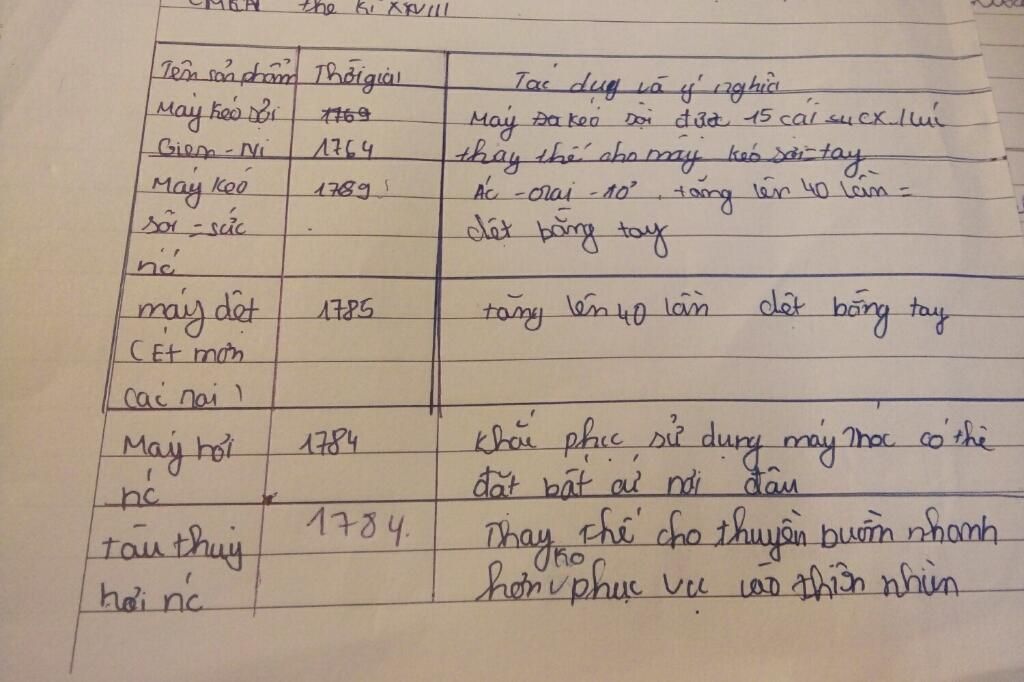 thế kỉ XXVIII
Tên sản phẩm Thời gian Tác dụg và ý nghĩa
Máy kéo sợi 1769 Máy kéo sợi được 15 cái suCX 1 lúc
Gien-Ni 1764 thay thế cho máy kéo sợi = tay
Máy kéo 1789 Ác - crai - tơ tăng lên 40 lần =
sợi = sức dệt bằng tay
nc
máy dệt 1785 tăng lên 40 lần dệt bằng tay
(Ét mơn
các rai)
Máy hơi 1784 khắc phục sử dụng máy móc có thể
nc đặt bất cứ nơi đâu
tàu thuỷ 1784. Thay thế cho thuyền buồm nhanh
hơi nc hơn ko phục vụ vào thiên nhiên